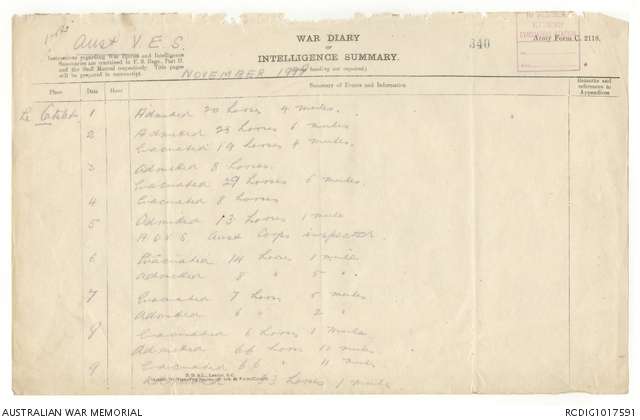 WAR DIARY
OR
INTELLIGENCE SUMMARY.
Army Form C. 2118.
340
Aust V. E. S.
Instructions regarding War Diaries and Intelligence
Summaries are contained in F. S. Regs., Part II.
and the Staff Manual respectively. Title pages
will be prepared in manuscript.
NOVEMBER
(Erase heading not required.)
Place Date Hour Summary of Events and Information Remarks and references to Appendices
Le Catelet 1 Admitted 20 horses 4 mules.
2 Admitted 23 horses 6 mules
Evacuated 19 horses 4 mules.
3 Admitted 8 horses.
Evacuated 29 horses 6 mules.
4 Evacuated 8 horses
5 Admitted 13 horses 1 mule
A.D.V.S. Aust Corps inspected.
6 Evacuated 14 horses 1 mule
Admitted 8 " 5 "
7 Evacuated 7 horses 5 mules
Admitted 6 " 2 "
8 Evacuated 6 horses 1 mule
Admitted 66 horses 12 mules.
9 Evacuated 66 " 11 mules
horses 1 mule
AUSTRALIAN WAR MEMORIAL
RCDIG1017591